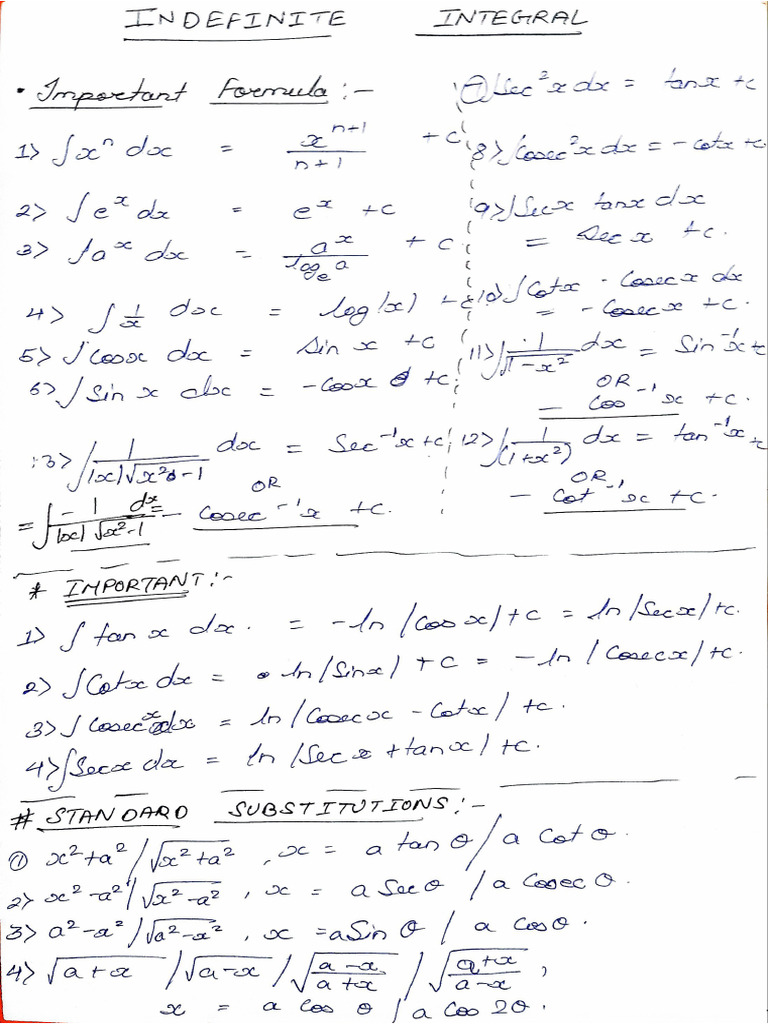 INDEFINITE INTEGRAL
• Important Formula :-
1> ∫xⁿ dx = xⁿ⁺¹/n+1 + c
2> ∫eˣ dx = eˣ + c
3> ∫aˣ dx = aˣ/logₑa + c
4> ∫1/x dx = log(x) + c
5> ∫cosx dx = sin x + c
6> ∫Sin x dx = -cosx + c
7> ∫Sec²x dx = tanx + c
8> ∫cosec²x dx = -cotx + c
9> ∫Secx tanx dx
= Sec x + c.
10> ∫Cotx - Cosecx dx
= -Cosecx + c.
11> ∫1/√1-x² dx = Sin⁻¹x + c
OR
- Cos⁻¹x + c.
12> ∫1/(1+x²) dx = tan⁻¹x + c
OR
- Cot⁻¹x + c.
13> ∫1/|x|√x²-1 dx = Sec⁻¹x + c
OR
= ∫-1/|x|√x²-1 dx = - cosec⁻¹x + c.
* IMPORTANT :-
1> ∫tanx dx. = -ln|Cosx| + c = ln|Secx| + c.
2> ∫Cotx dx = ln|Sinx| + c = -ln|Cosecx| + c.
3> ∫Cosecx dx = ln|Cosecx - Cotx| + c.
4> ∫Secx dx = ln|Secx + tanx| + c.
# STANDARD SUBSTITUTIONS :-
① x²+a² / √x²+a² , x = a tan θ / a cot θ.
2> x²-a² / √x²-a² , x = a Sec θ / a Cosec θ.
3> a²-x² / √a²-x² , x = aSin θ / a cos θ.
4> √a+x / √a-x / √a-x/a+x / √a+x/a-x ,
x = a cos θ / a Cos 2θ.